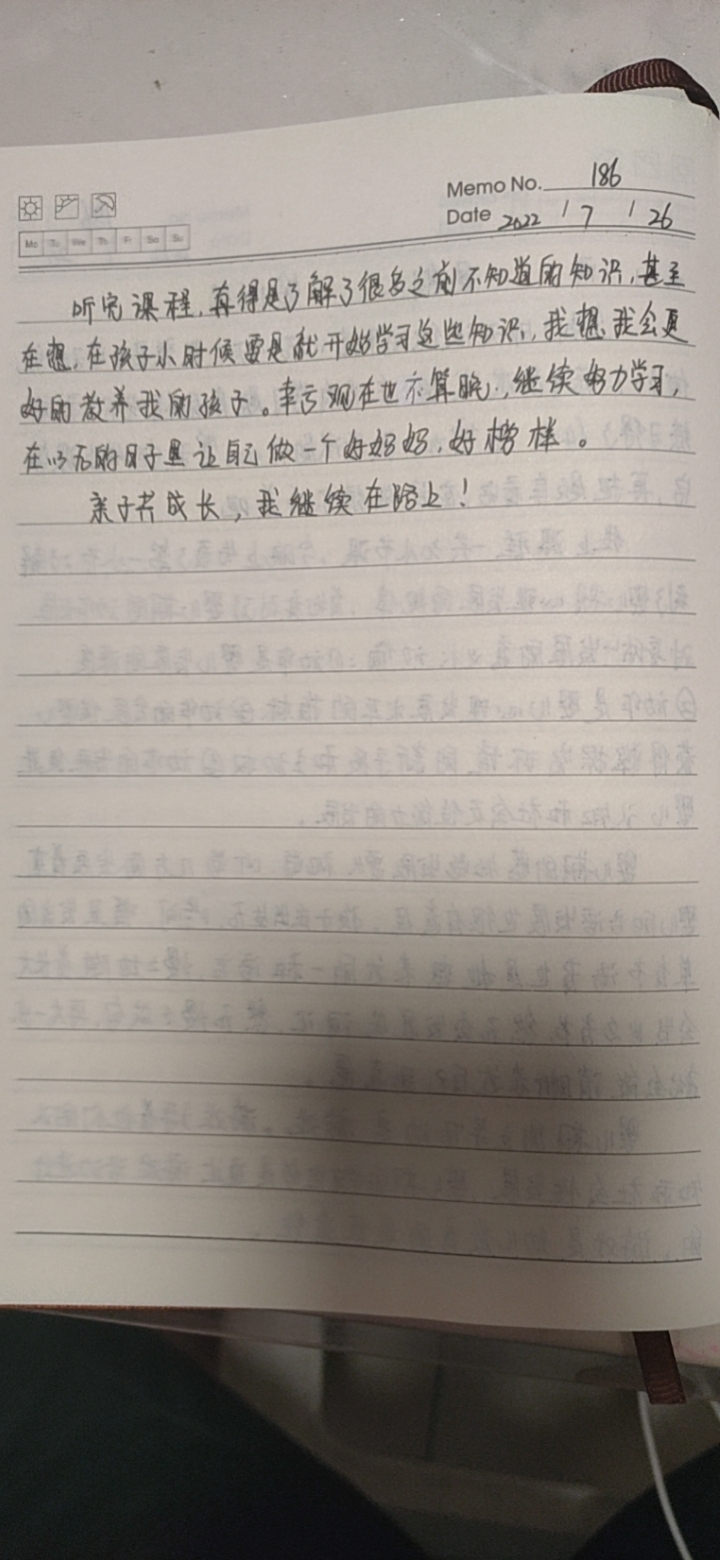 Memo No. 186
Mo Tu We Th Fr Sa Su
Date 2022 / 7 / 26
听完课程,真得是了解了很多之前不知道的知识,甚至
在想,在孩子小时候要是就开始学习这些知识,我想,我会更
好的教养我的孩子。幸亏现在也不算晚,继续努力学习,
在以后的日子里让自己做一个好妈妈,好榜样。
亲子共成长,我继续在路上!